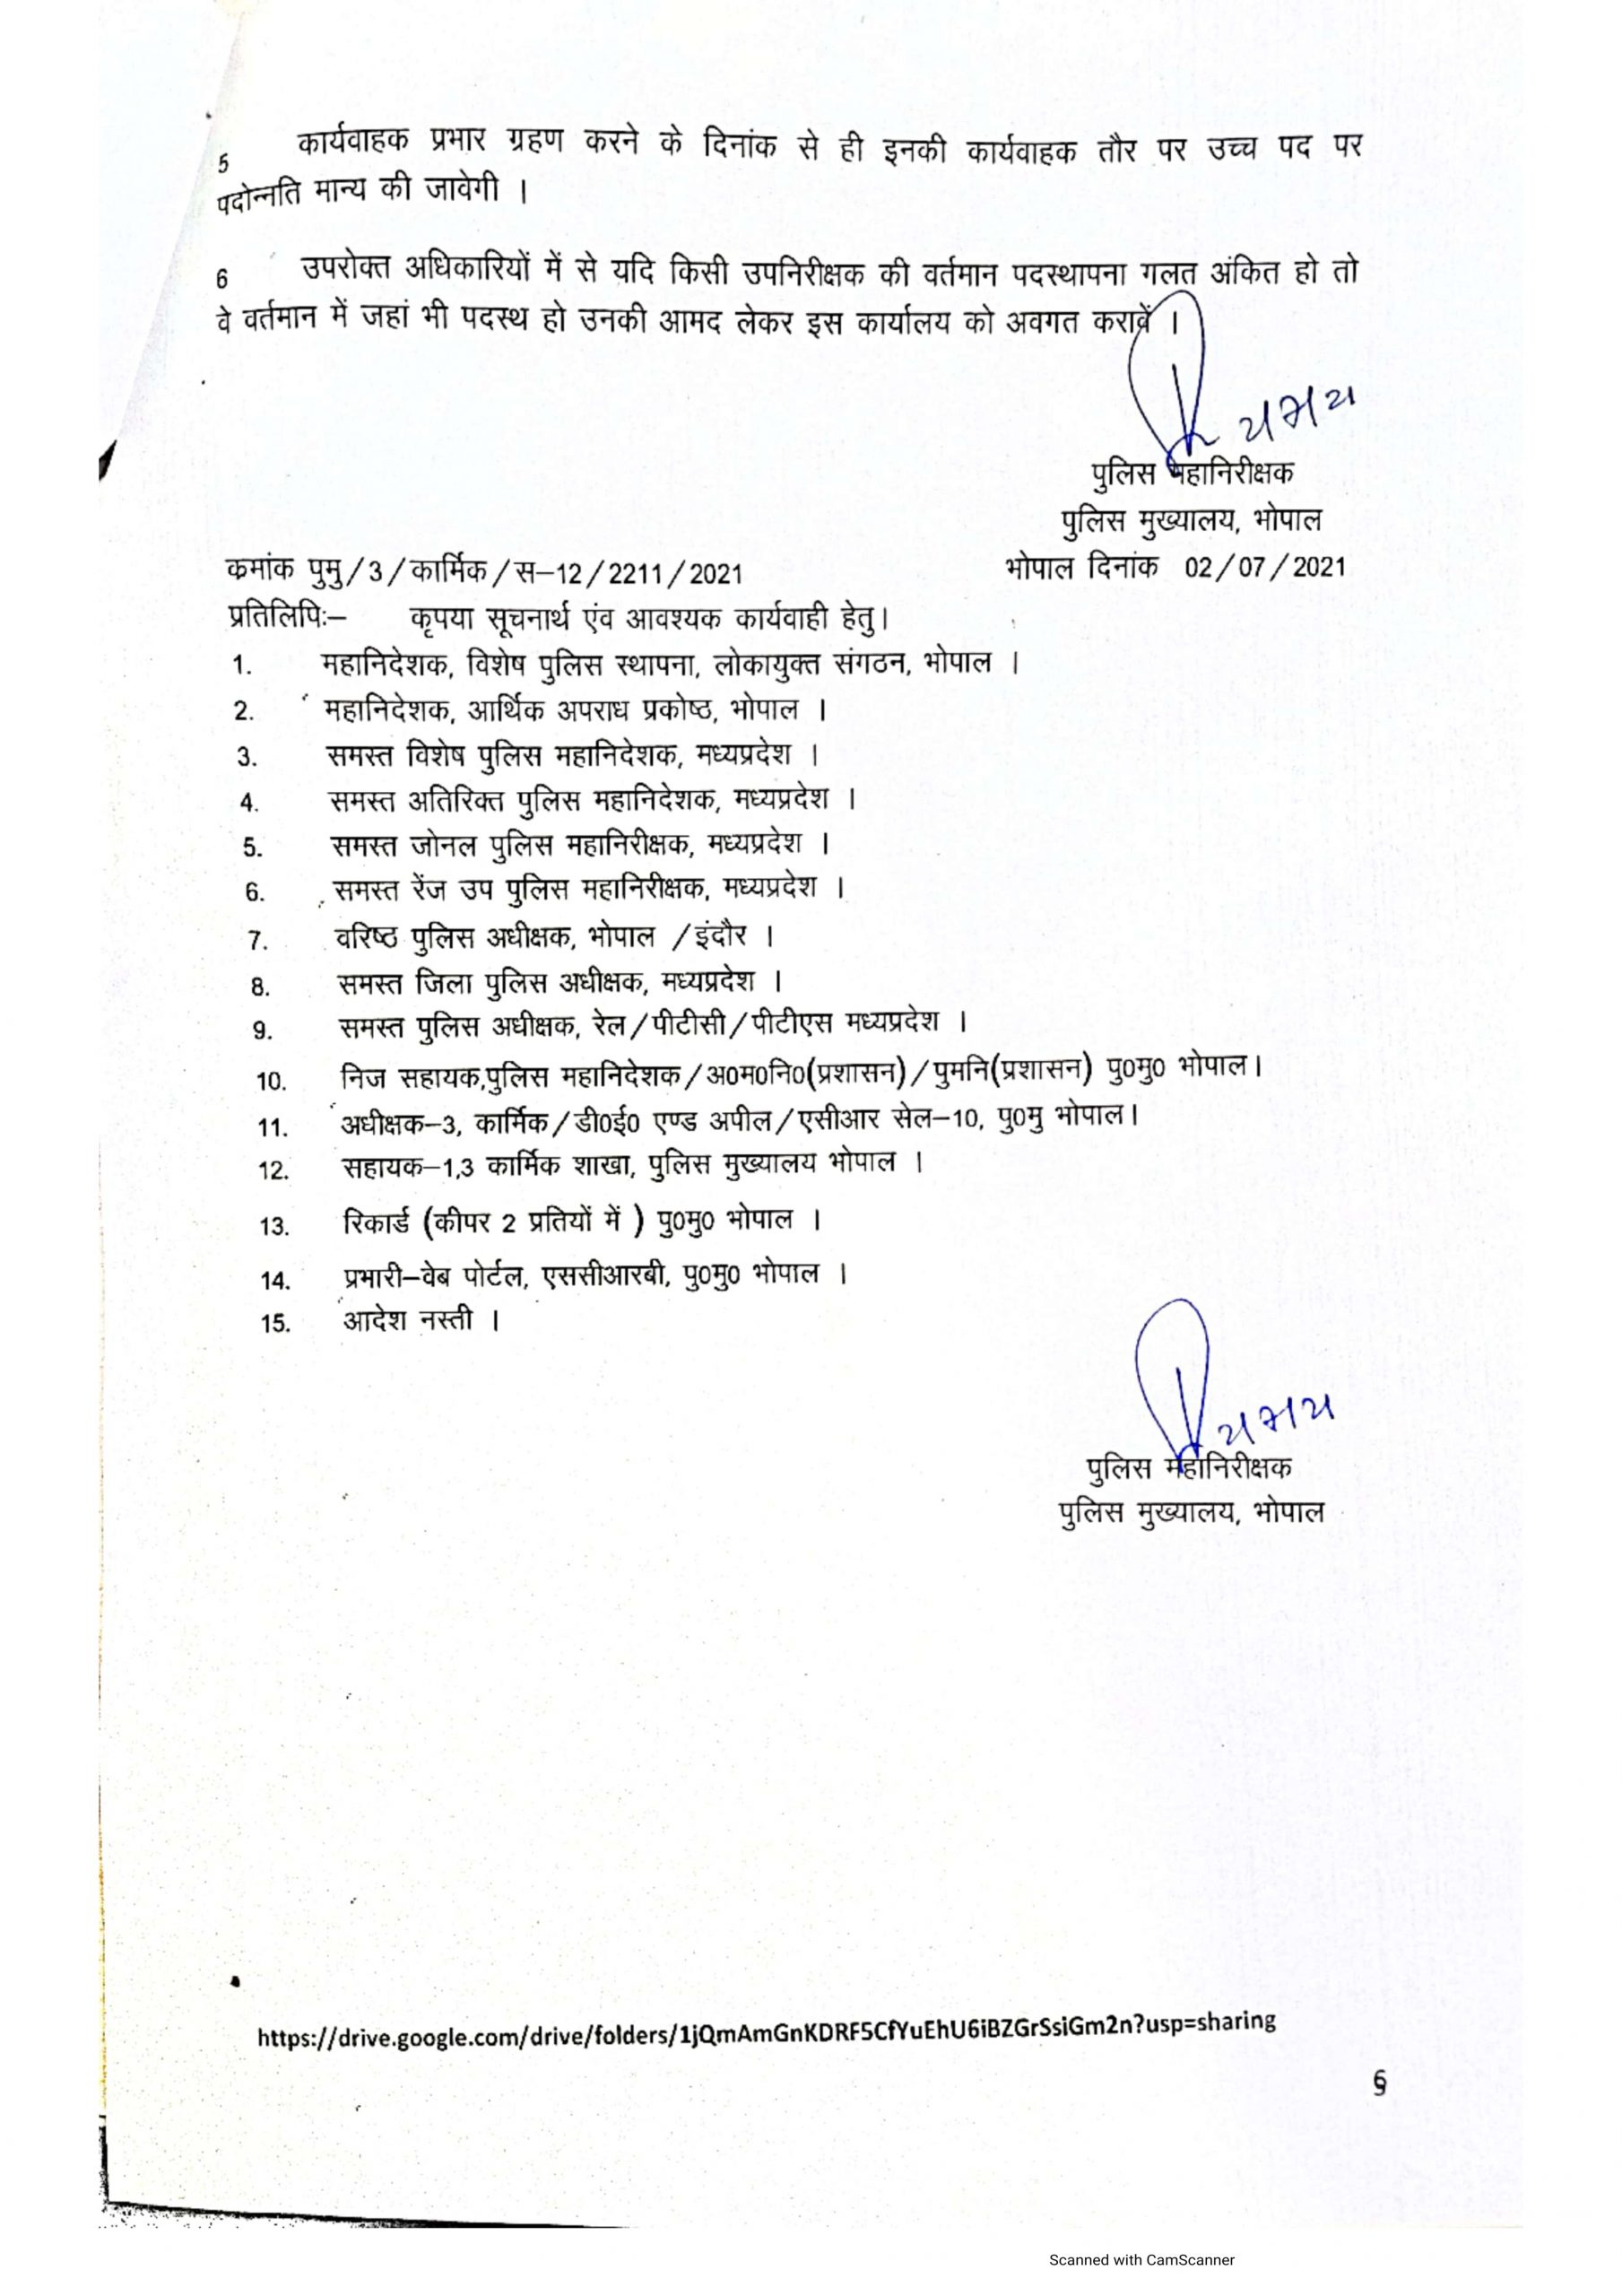 5 कार्यवाहक प्रभार ग्रहण करने के दिनांक से ही इनकी कार्यवाहक तौर पर उच्च पद पर
पदोन्नति मान्य की जावेगी ।
6 उपरोक्त अधिकारियों में से यदि किसी उपनिरीक्षक की वर्तमान पदस्थापना गलत अंकित हो तो
वे वर्तमान में जहां भी पदस्थ हो उनकी आमद लेकर इस कार्यालय को अवगत करावें ।
पुलिस महानिरीक्षक
पुलिस मुख्यालय, भोपाल
कमांक पुमु/3/कार्मिक/स-12/2211/2021 भोपाल दिनांक 02/07/2021
प्रतिलिपिः- कृपया सूचनार्थ एंव आवश्यक कार्यवाही हेतु।
1. महानिदेशक, विशेष पुलिस स्थापना, लोकायुक्त संगठन, भोपाल ।
2. महानिदेशक, आर्थिक अपराध प्रकोष्ठ, भोपाल ।
3. समस्त विशेष पुलिस महानिदेशक, मध्यप्रदेश ।
4. समस्त अतिरिक्त पुलिस महानिदेशक, मध्यप्रदेश ।
5. समस्त जोनल पुलिस महानिरीक्षक, मध्यप्रदेश ।
6. समस्त रेंज उप पुलिस महानिरीक्षक, मध्यप्रदेश ।
7. वरिष्ठ पुलिस अधीक्षक, भोपाल /इंदौर ।
8. समस्त जिला पुलिस अधीक्षक, मध्यप्रदेश ।
9. समस्त पुलिस अधीक्षक, रेल/पीटीसी/पीटीएस मध्यप्रदेश ।
10. निज सहायक,पुलिस महानिदेशक/अ0म0नि0(प्रशासन)/पुमनि(प्रशासन) पु0मु0 भोपाल।
11. अधीक्षक-3, कार्मिक/डी0ई0 एण्ड अपील/एसीआर सेल-10, पु0मु भोपाल।
12. सहायक-1,3 कार्मिक शाखा, पुलिस मुख्यालय भोपाल ।
13. रिकार्ड (कीपर 2 प्रतियों में ) पु0मु0 भोपाल ।
14. प्रभारी-वेब पोर्टल, एससीआरबी, पु0मु0 भोपाल ।
15. आदेश नस्ती ।
पुलिस महानिरीक्षक
पुलिस मुख्यालय, भोपाल
https://drive.google.com/drive/folders/1jQmAmGnKDRF5CfYuEhU6iBZGrSsiGm2n?usp=sharing
Scanned with CamScanner